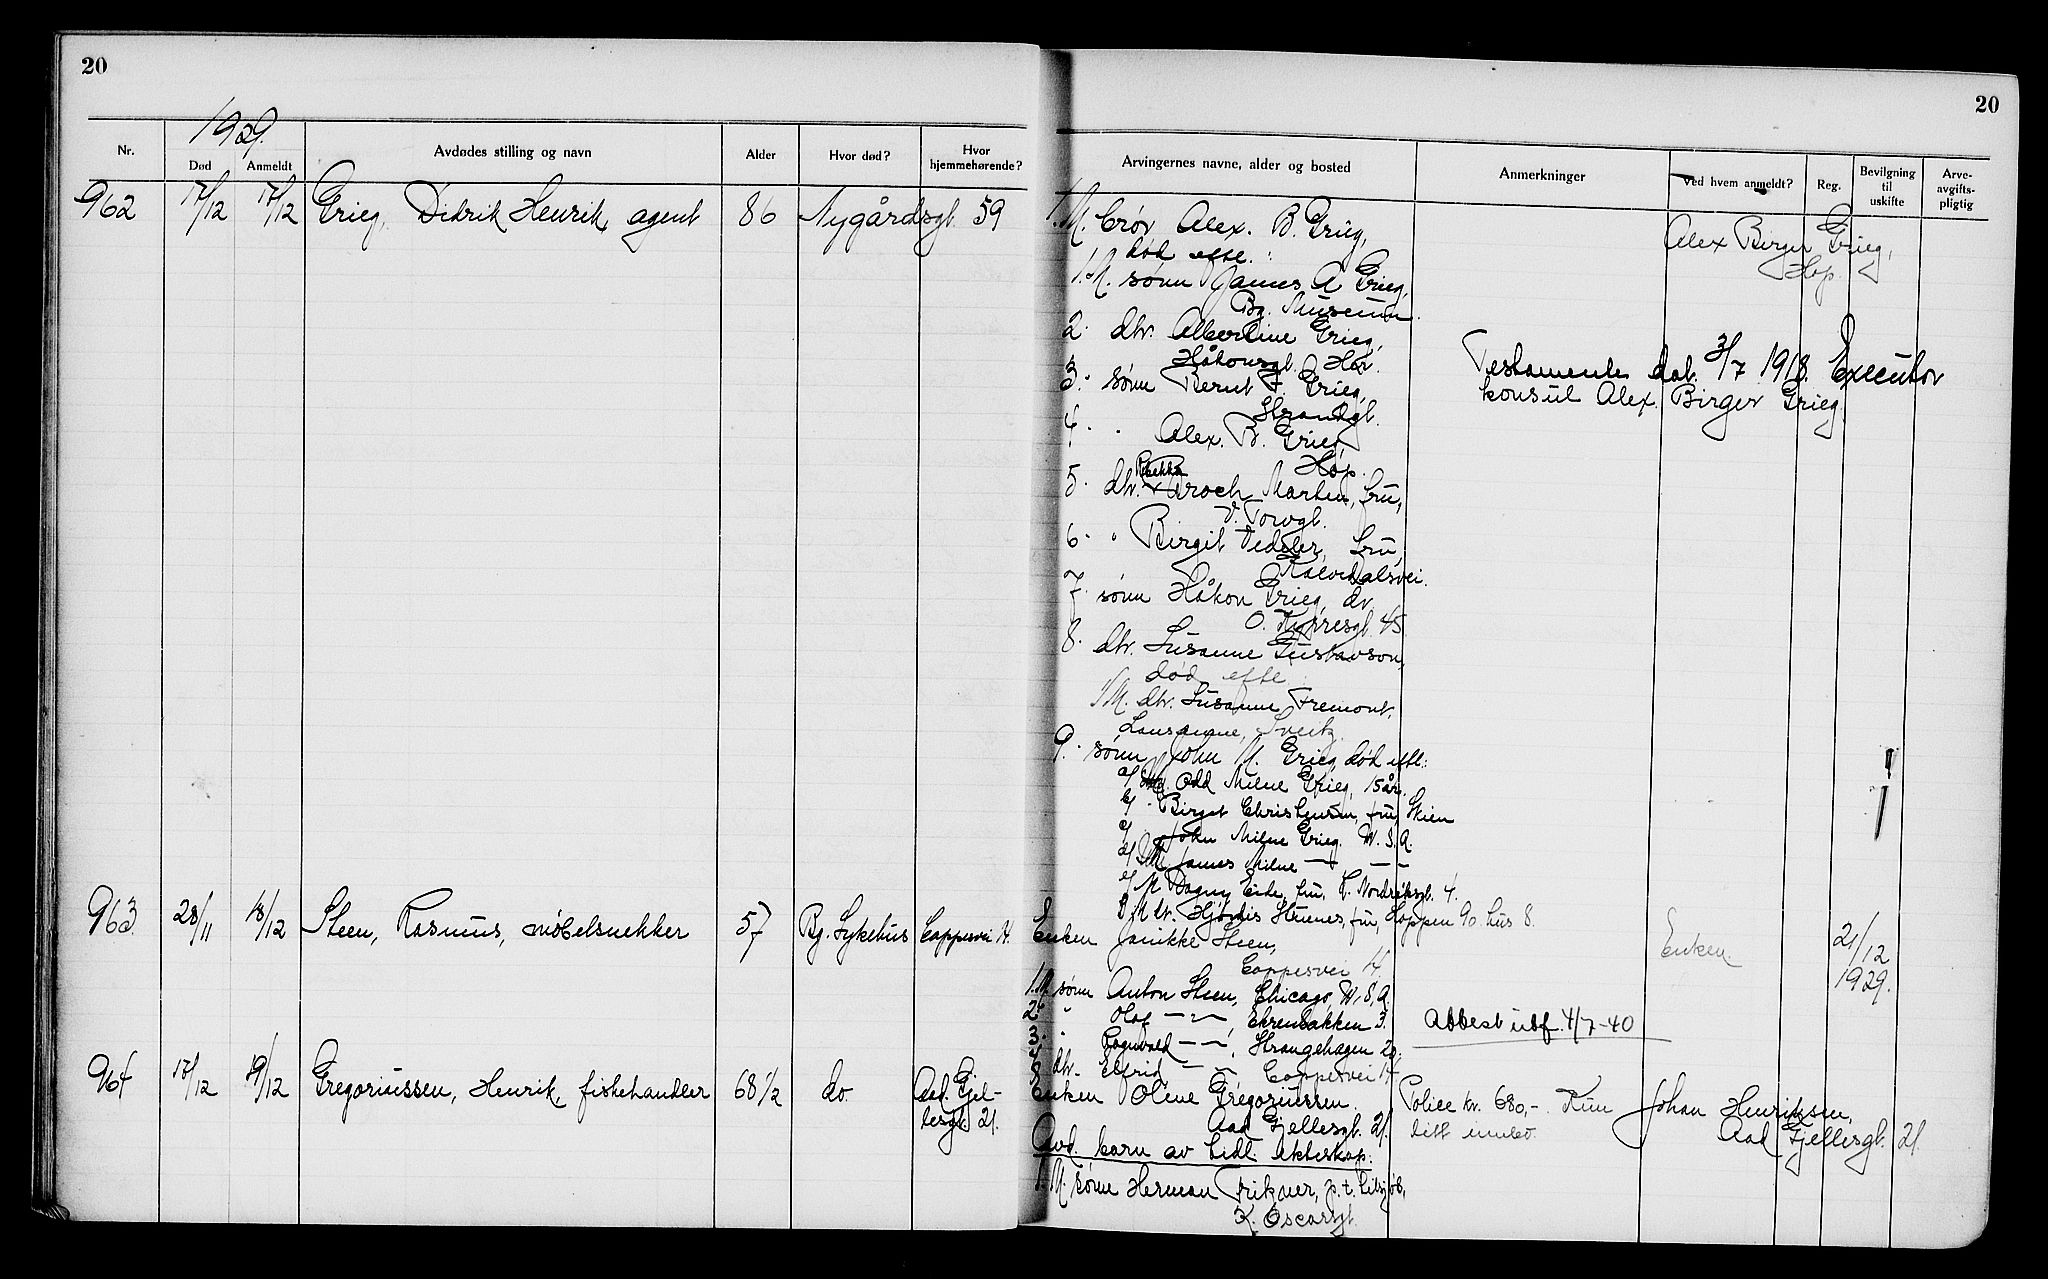 20
20
1929.
Nr.
Død
Anmeldt
Avdødes stilling og navn
Alder
Hvor død?
Hvor hjemmehørende?
Arvingernes navne, alder og bosted
Anmerkninger
Ved hvem anmeldt?
Reg.
Bevilgning til uskifte
Arve-avgifts-pligtig
962 17/12 17/12 Grieg, Didrik Henrik, agent 86 Nygårdsgt. 59
1. M. bror Alex. B. Grieg,
død eftl.:
1. M. sønn James A Grieg,
Bg. Museum.
2. dtr. Albertine Grieg,
Håkonsgt.
3. sønn Bernt Grieg,
Strandgt.
4. " Alex. B. Grieg
Hop.
5. dtr. Martens, fru,
V. Torvgt.
6. " Birgit Dedeler, fru,
Kalvedalsvei.
7. sønn Håkon Grieg, dr.
45
8. dtr. Susanne Gustavson,
død eftl
1 M. dtr. Susanne Fremont,
Lausanne, Sveitz.
9. sønn John M. Grieg, død eftl:
a/ Odd Milne Grieg, 15 år.
b/ " Birgit Christensen, fru, Skien
c/ John Milne Grieg. U. S. A.
d/ M James Milne — " — —
e/ M Dagny Eide, fru, 4.
M dtr. Hjørdis fru, 90 hus 8.
Alex Birger Grieg,
Hop.
Testamente dat. 3/7 1918. Executor
konsul Alex. Birger Grieg.
963 28/11 18/12 Steen, Rasmus, møbelsnekker 57 Bg. Sykehus Cappesvei 14.
Enken Janikke Steen,
Cappesvei 14.
1. M. sønn Anton Steen, Chicago, U. S. A.
2. " Olaf — " —, Ehrenbakken 3.
3. " Ragnvald — " —, Strangehagen 20.
4. dtr. Elfrid, — " — Cappesvei 14
Enken.
21/12
1929.
Attest utf. 4/7-40
964 17/12 19/12 Gregoriussen, Henrik, fiskehandler 68 1/2 do. Aad. Gjel-
lesgt. 21.
Enken Oline Gregoriussen.
Aad Gjellesgt. 21.
Avd. barn av tidl. ekteskap:
1. M. sønn Herman p. t. tilsjøs,
K. Oscarsgt.
Police kr. 680,-. Kun
litt innbo.
Johan Henriksen,
Aad Gjellesgt. 21.